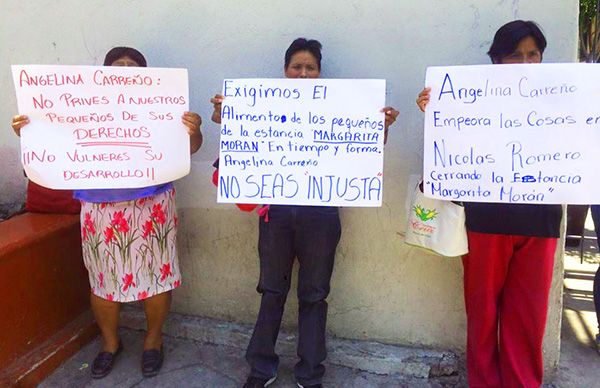 ANGELINA CARREÑO:
NO PRIVES A NUESTROS
PEQUEÑOS DE SUS
DERECHOS
¡¡NO VULNERES SU
DESARROLLO!!
EXIGIMOS El
Alimento de los pequeños
de la estancia "MARGARITA
MORÁN" En tiempo y forma.
Angelina Carreño
NO SEAS "INJUSTA"
Angelina Carreño
Empeora las Cosas en
Nicolas Romero
Cerrando la Estancia
"Margarita Morán"